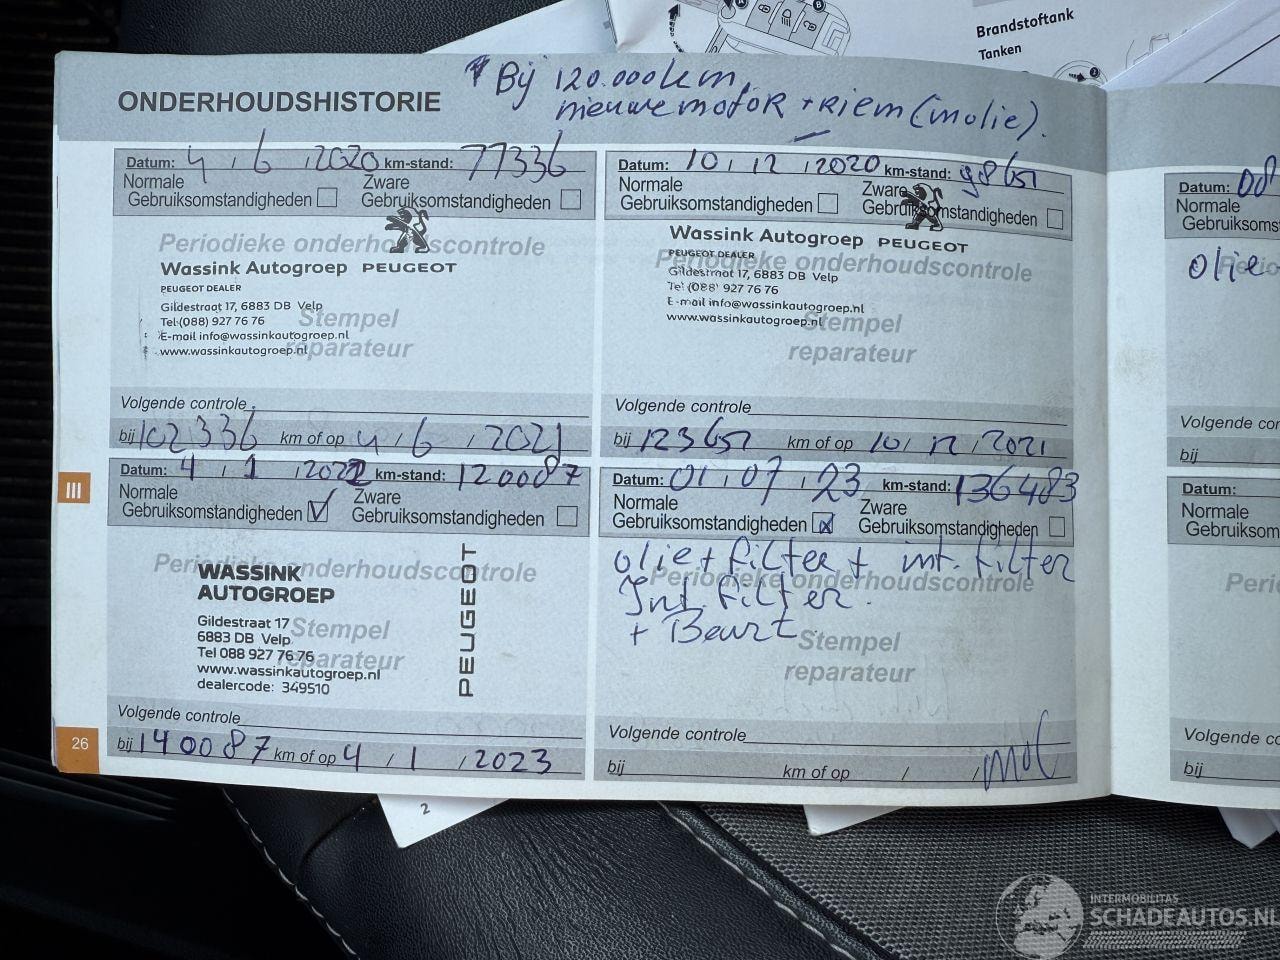 Brandstoftank
Tanken
* Bij 120.000km,
nieuwe motor + Riem (in olie).
ONDERHOUDSHISTORIE
Datum: 4 / 6 / 2020 km-stand: 77336
Normale
Gebruiksomstandigheden
Zware
Gebruiksomstandigheden
Periodieke onderhoudscontrole
Wassink Autogroep PEUGEOT
PEUGEOT DEALER
Gildestraat 17, 6883 DB Velp
Tel (088) 927 76 76
E-mail info@wassinkautogroep.nl
www.wassinkautogroep.nl
Stempel
reparateur
Volgende controle
bij 102336 km of op 4 / 6 / 2021
Datum: 10 / 12 / 2020 km-stand: 98651
Normale
Gebruiksomstandigheden
Zware
Gebruiksomstandigheden
Wassink Autogroep PEUGEOT
PEUGEOT DEALER
Periodieke onderhoudscontrole
Gildestraat 17, 6883 DB Velp
Tel (088) 927 76 76
E-mail info@wassinkautogroep.nl
www.wassinkautogroep.nl
Stempel
reparateur
Volgende controle
bij 123651 km of op 10 / 12 / 2021
III
Datum: 4 / 1 / 2022 km-stand: 120087
Normale
Gebruiksomstandigheden
Zware
Gebruiksomstandigheden
Periodieke onderhoudscontrole
WASSINK
AUTOGROEP
Gildestraat 17
6883 DB Velp
Tel 088 927 76 76
www.wassinkautogroep.nl
dealercode: 349510
PEUGEOT
Stempel
reparateur
Volgende controle
bij 140087 km of op 4 / 1 / 2023
26
Datum: 01 / 07 / 23 km-stand: 136483
Normale
Gebruiksomstandigheden
Zware
Gebruiksomstandigheden
olie + filter + int. filter
Periodieke onderhoudscontrole
Int. filter.
+ Beurt
Stempel
reparateur
Volgende controle
bij km of op / /
Datum: 08
Normale
Gebruiksomst
olie
Perio
Volgende co
bij
Datum:
Normale
Gebruiksom
Peri
Volgende co
bij
2
INTERMOBILITAS
SCHADEAUTOS.NL